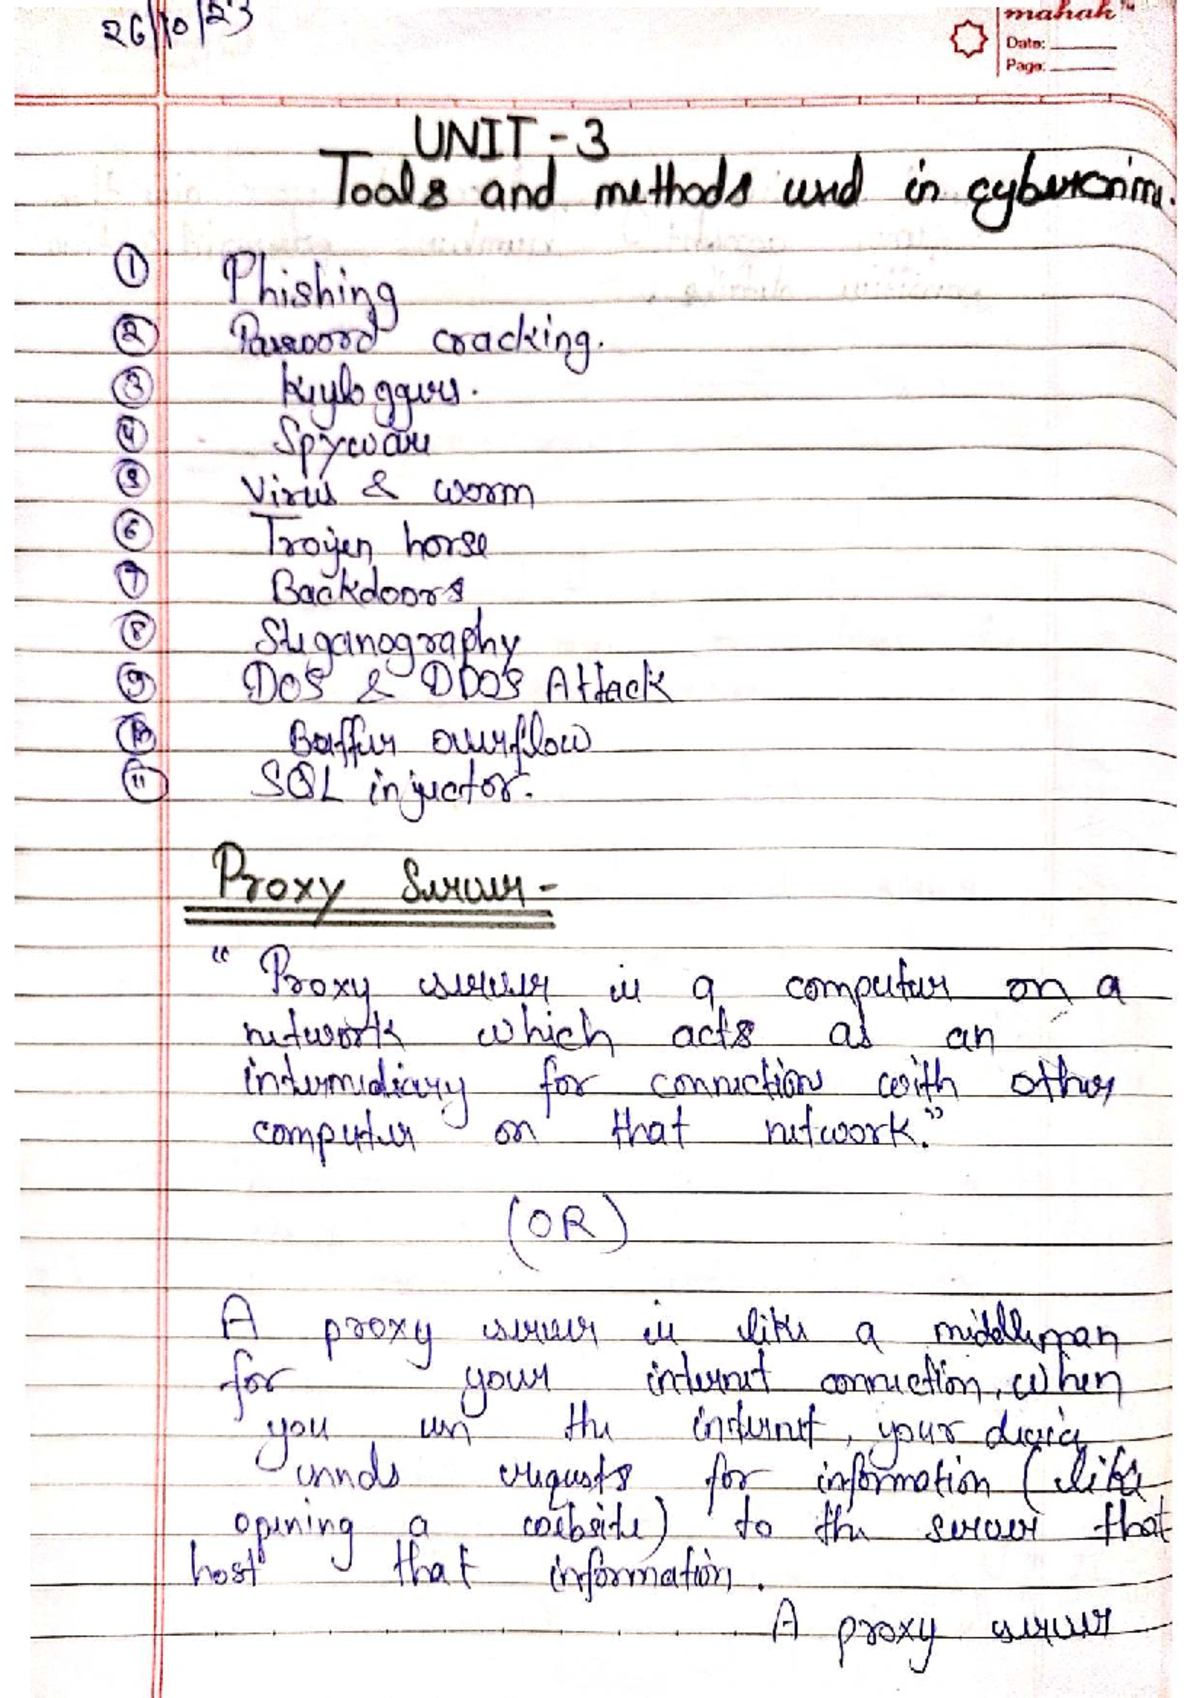 26/10/23
mahak
Date:
Page:
UNIT-3
Tools and methods used in cybercrime.
① Phishing
② Password cracking.
③ Keyloggers.
④ Spyware
⑤ Virus & worm
⑥ Trojen horse
⑦ Backdoors
⑧ Steganography
⑨ DOS & DDOS Attack
⑩ Baffer overflow
⑪ SQL injector.
Proxy Server-
“ Proxy server is a computer on a
network which acts as an
intermediary for connection with other
computer on that network.”
(OR)
A proxy server is like a middleman
for your internet connection, when
you use the internet, your device
sends requests for information (like
opening a website) to the server that
host that information.
A proxy server